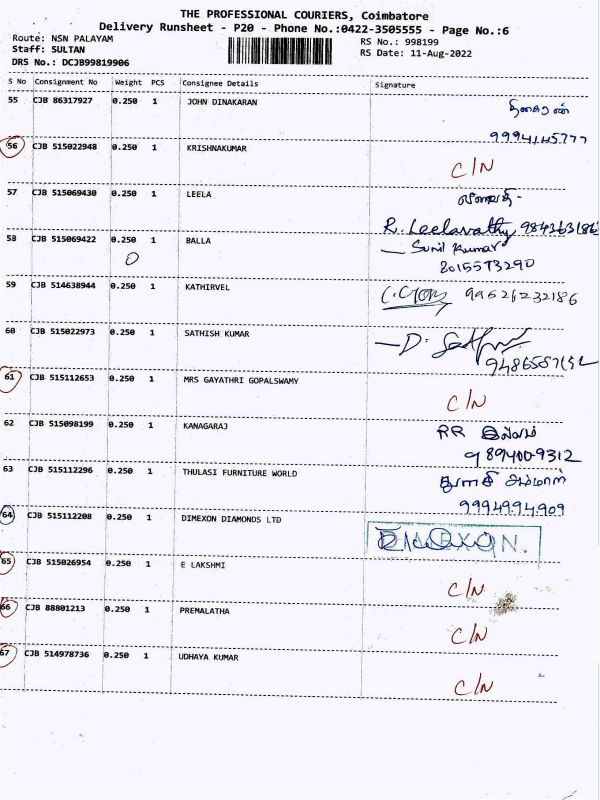 THE PROFESSIONAL COURIERS, Coimbatore
Delivery Runsheet - P20 - Phone No.:0422-3505555 - Page No.:6
Route: NSN PALAYAM RS No.: 998199
Staff: SULTAN RS Date: 11-Aug-2022
DRS No.: DCJB99819906
S No Consignment No Weight PCS Consignee Details Signature
55 CJB 86317927 0.250 1 JOHN DINAKARAN தினகரன்
9994145777
56 CJB 515022948 0.250 1 KRISHNAKUMAR C/N
57 CJB 515069430 0.250 1 LEELA
R. Leelavathy
58 CJB 515069422 0.250 1 BALLA Sunil Kumar
0 8015573290
59 CJB 514638944 0.250 1 KATHIRVEL
60 CJB 515022973 0.250 1 SATHISH KUMAR
61 CJB 515112653 0.250 1 MRS GAYATHRI GOPALSWAMY C/N
62 CJB 515098199 0.250 1 KANAGARAJ RR இல்லம்
9894009312
63 CJB 515112296 0.250 1 THULASI FURNITURE WORLD துளசி அம்மாள்
9994994909
64 CJB 515112208 0.250 1 DIMEXON DIAMONDS LTD DIMEXON.
65 CJB 515026954 0.250 1 E LAKSHMI C/N
66 CJB 88801213 0.250 1 PREMALATHA C/N
67 CJB 514978736 0.250 1 UDHAYA KUMAR C/N